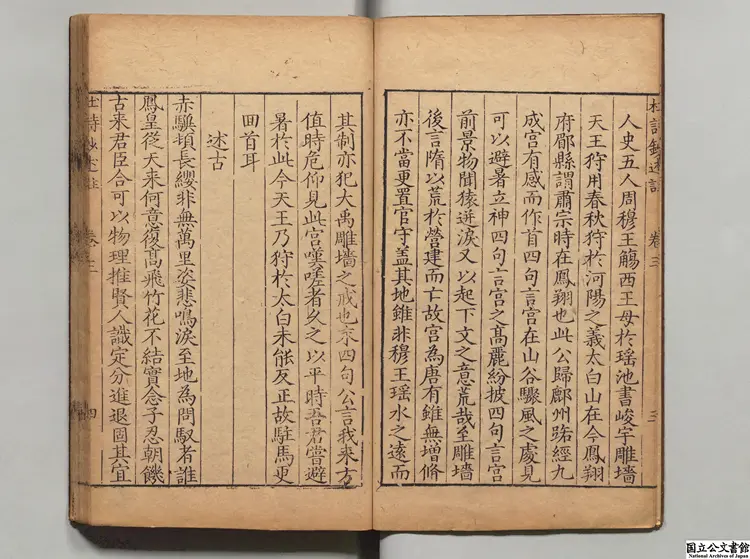 杜詩鈔述註 卷三 三
人史五人周穆王觴西王母於瑶池書峻宇雕墻
天王狩用春秋狩於河陽之義太白山在今鳳翔
府郿縣謂肅宗時在鳳翔也此公歸鄜州路經九
成宮有感而作首四句言宮在山谷驟風之處見
可以避暑立神四句言宮之髙麗紛披四句言宮
前景物聞猿迸淚又以起下文之意荒哉至雕墻
後言隋以荒於營建而亡故宮為唐有雖無増脩
亦不當更置官守盖其地雖非穆王瑶水之遠而
其制亦犯大禹雕墻之戒也末四句公言我来方
值時危仰見此宮嘆嗟者久之以平時吾君嘗避
暑於此今天王乃狩於太白未能反正故駐馬更
囬首耳
述古
赤驥頓長纓非無萬里姿悲鳴淚至地為問馭者誰
鳳皇從天来何意復髙飛竹花不結實念子忍朝饑
古来君臣合可以物理推賢人識定分進退固其宜
杜詩鈔述註 卷三 四
国立公文書館
National Archives of Japan